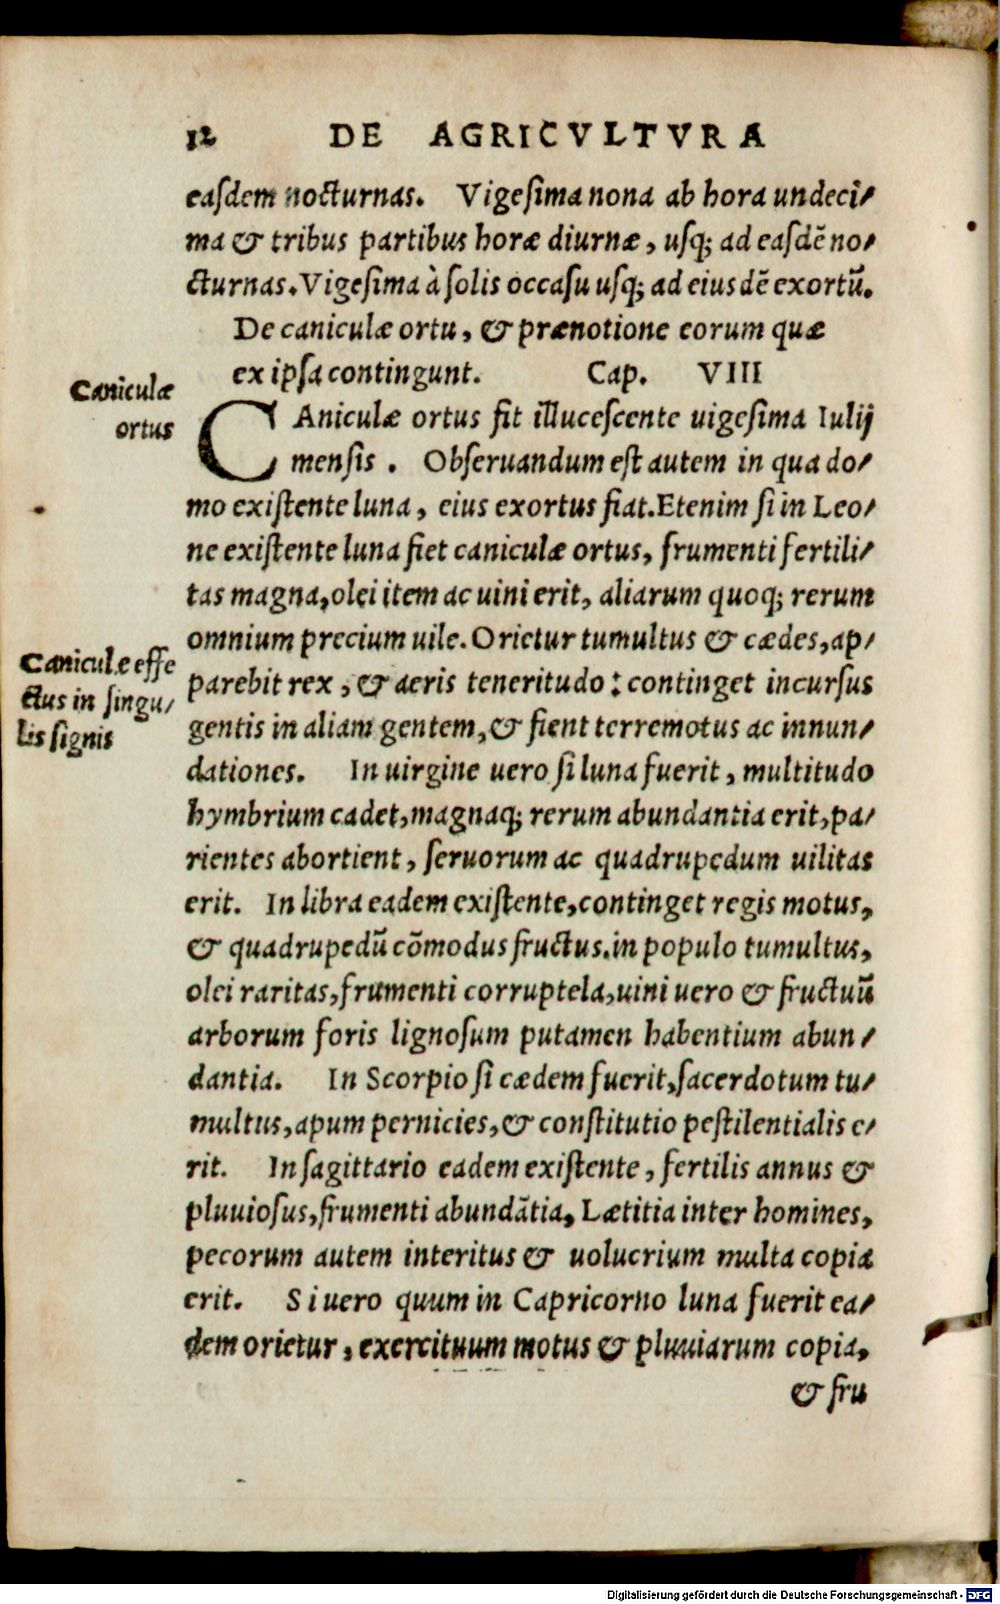 12 DE AGRICVLTVRA
easdem nocturnas. Vigesima nona ab hora undeci/
ma & tribus partibus horæ diurnæ, usq; ad easdē no/
cturnas. Vigesima à solis occasu usq; ad eiusdē exortū.
De caniculæ ortu, & prænotione eorum quæ
ex ipsa contingunt. Cap. VIII
Caniculæ
ortus
CAniculæ ortus fit illucescente uigesima Iulij
mensis. Obseruandum est autem in qua do/
mo existente luna, eius exortus fiat. Etenim si in Leo/
ne existente luna fiet caniculæ ortus, frumenti fertili/
tas magna, olei item ac uini erit, aliarum quoq; rerum
omnium precium uile. Orietur tumultus & cædes, ap/
parebit rex, & aeris teneritudo: continget incursus
gentis in aliam gentem, & fient terremotus ac innun/
dationes. In uirgine uero si luna fuerit, multitudo
Caniculæ effe
ctus in singu/
lis signis
hymbrium cadet, magnaq; rerum abundantia erit, pa/
rientes abortient, seruorum ac quadrupedum uilitas
erit. In libra eadem existente, continget regis motus,
& quadrupedū cōmodus fructus. in populo tumultus,
olei raritas, frumenti corruptela, uini uero & fructuū
arborum foris lignosum putamen habentium abun/
dantia. In Scorpio si cædem fuerit, sacerdotum tu/
multus, apum pernicies, & constitutio pestilentialis e/
rit. In sagittario eadem existente, fertilis annus &
pluuiosus, frumenti abundātia, Lætitia inter homines,
pecorum autem interitus & uolucrium multa copia
erit. Si uero quum in Capricorno luna fuerit ea/
dem orietur, exercituum motus & pluuiarum copia,
& fru
Digitalisierung gefördert durch die Deutsche Forschungsgemeinschaft - DFG